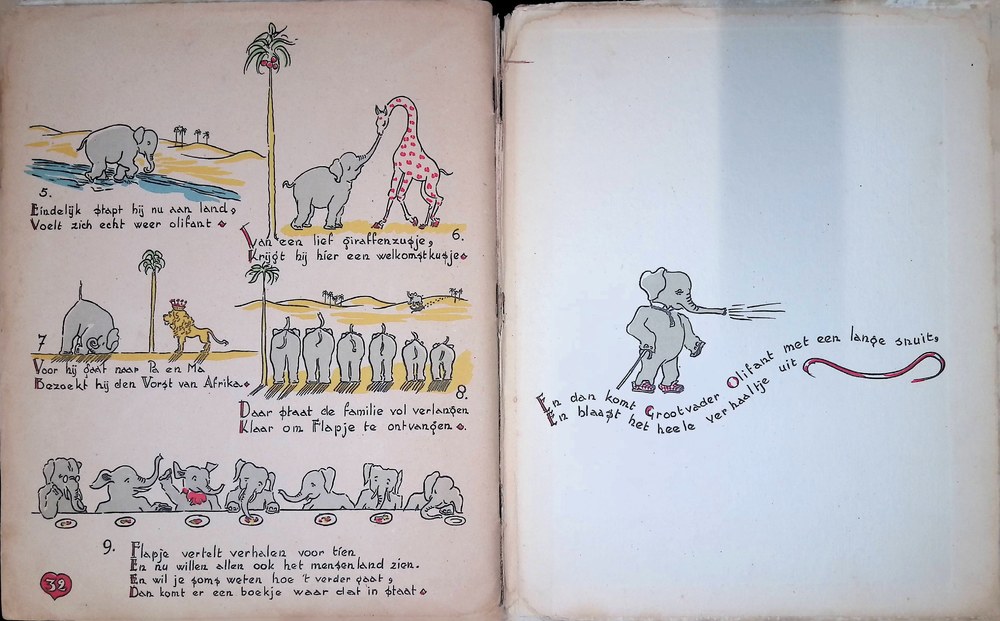 5.
Eindelijk stapt hij nu aan land,
Voelt zich echt weer olifant.
6.
Van een lief giraffenzusje,
Krijgt hij hier een welkomstkusje.
7
Voor hij gaat naar Pa en Ma
Bezoekt hij den Vorst van Afrika.
8.
Daar staat de familie vol verlangen
Klaar om Flapje te ontvangen.
9.
Flapje vertelt verhalen voor tien
En nu willen allen ook het mensenland zien.
En wil je soms weten hoe 't verder gaat,
Dan komt er een boekje waar dat in staat.
32
En dan komt Grootvader Olifant met een lange snuit,
En blaast het heele verhaaltje uit